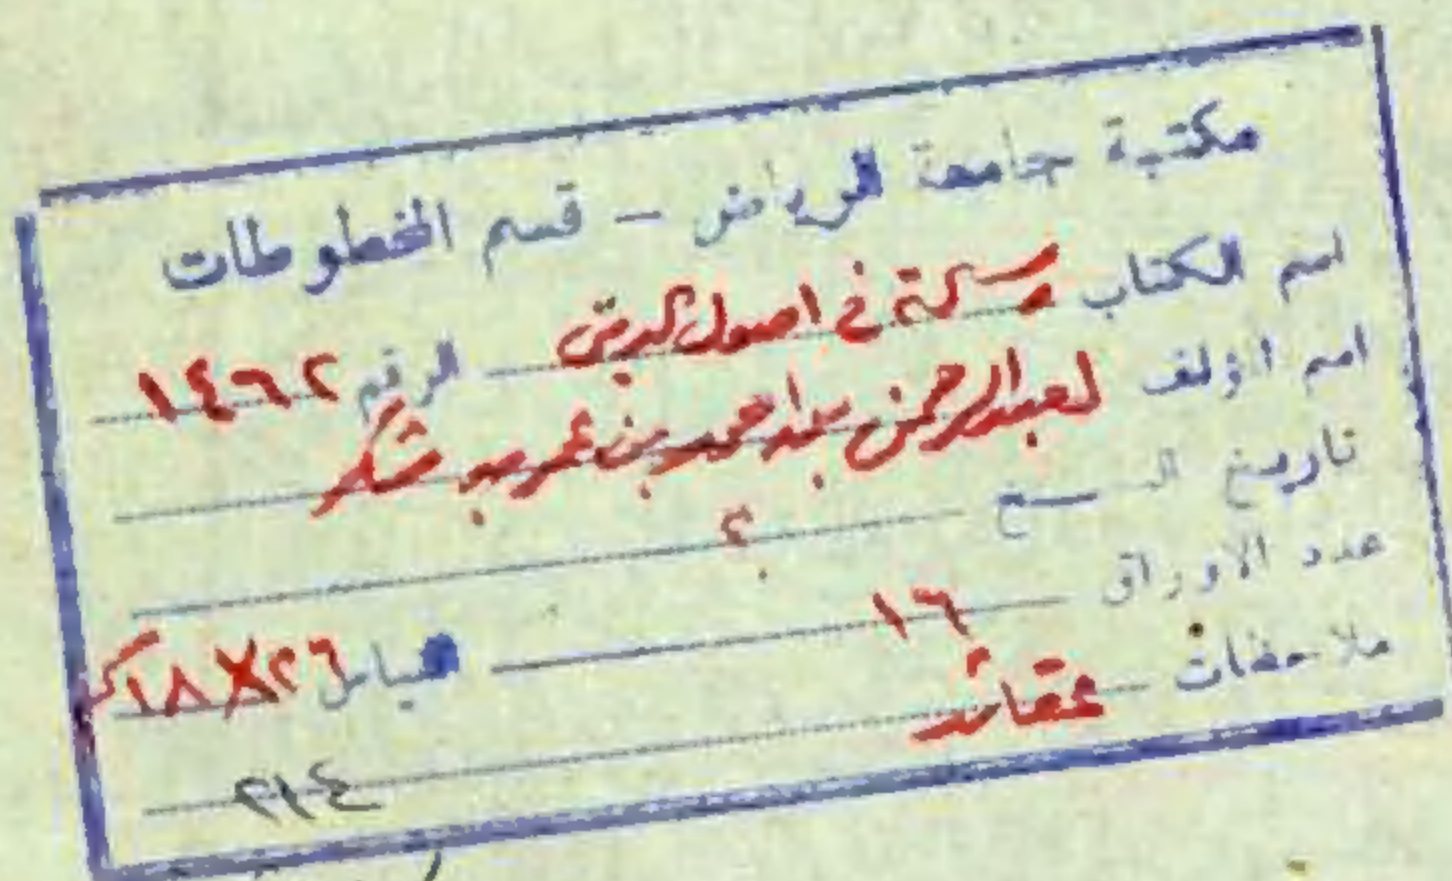 مكتبة جامعة الرياض - قسم المخطوطات
اسم الكتاب رسالة في اصول الدين الرقم ١٤٦٢
اسم المؤلف لعبدالرحمن بن احمد بن عمر بن شكر
تاريخ النسخ ؟
عدد الاوراق ١٦ القياس ١٨X٢٦ كم
ملاحظات عقائد
٢١٤